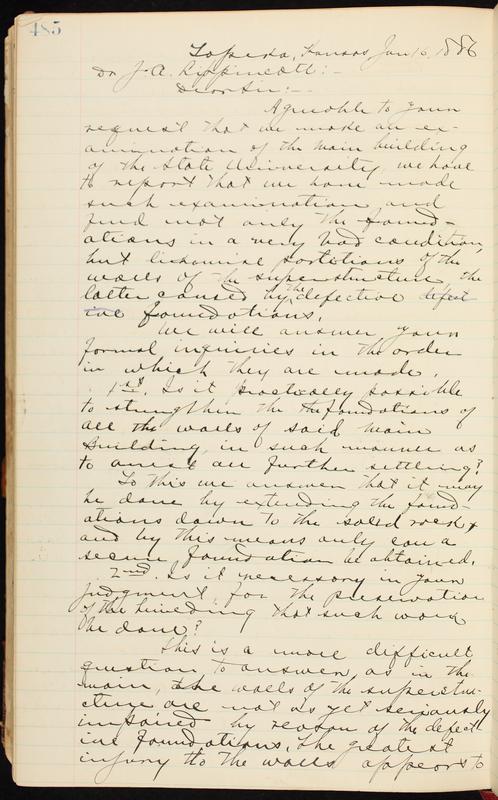 485
Topeka, Kansas Jan 16, 1886
Dr J. A. Lippincott:-
Dear Sir:-
Agreeable to your
request that we made an ex-
amination of the main building
of the State University, we have
to report that we have made
such examination and
find not only the found-
ations in a very bad condition,
but likewise portions of the
walls of the superstructure, the
latter caused by the defective defect
ive foundations.
We will answer your
formal inquiries in the order
in which they are made.
1st. Is it practically possible
to strengthen the the foundations of
all the walls of said Main
Building, in such manner as
to arrest all further settling?
To this we answer that it may
be done by extending the found-
ations down to the solid rock,
and by this means only can a
secure foundation be obtained.
2nd. Is it necessary in your
judgment, for the preservation
of the building that such work
be done?
This is a more difficult
question to answer, as in the
main, the walls of the superstru-
cture are not as yet seriously
impaired by reason of the defect-
ive foundations. The greatest
injury to the walls appears to